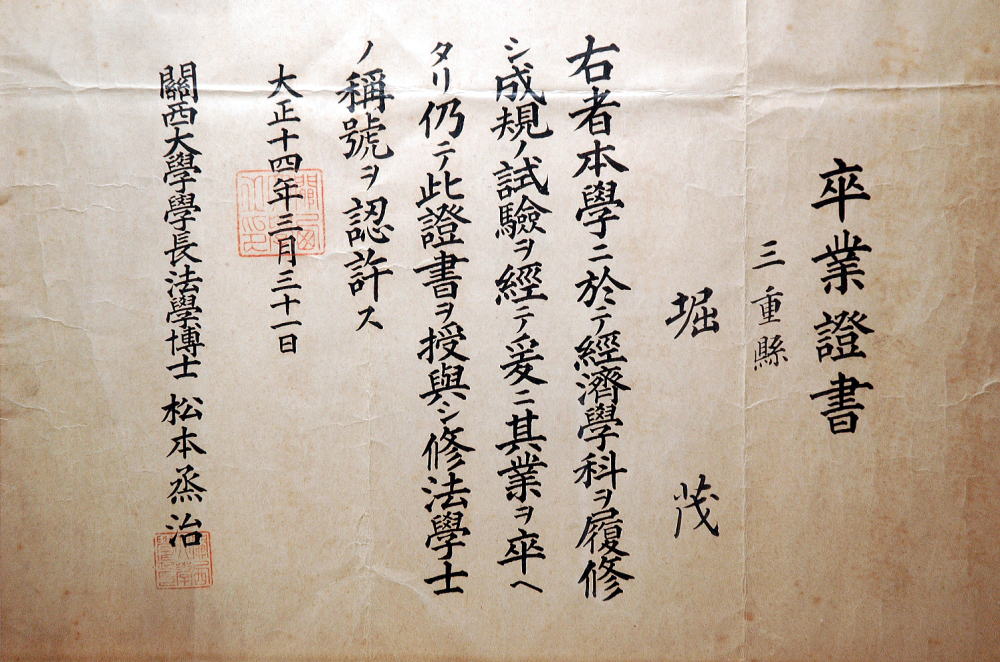 卒業證書
三重縣
堀茂
右者本學ニ於テ經濟學科ヲ履修
シ成規ノ試驗ヲ經テ爰ニ其業ヲ卒ヘ
タリ仍テ此證書ヲ授與シ修法學士
ノ稱號ヲ認許ス
大正十四年三月三十一日
關西大學學長法學博士 松本烝治